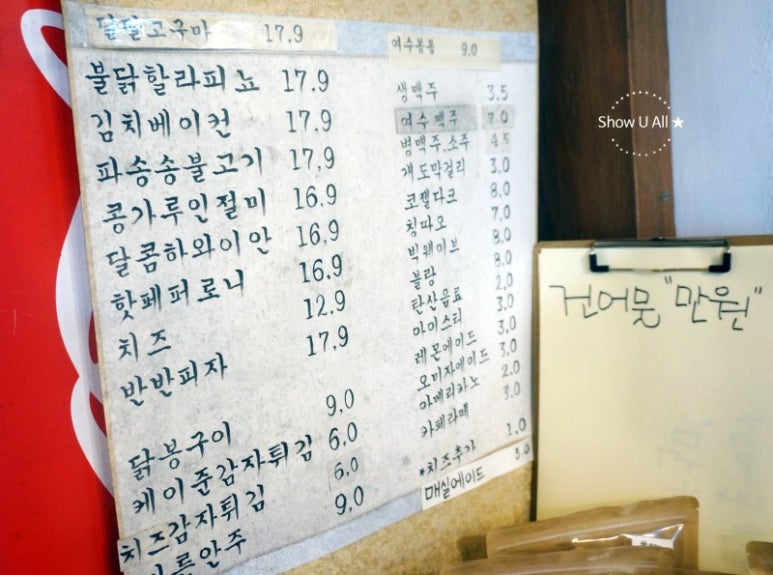 달달고구마 17.9
불닭할라피뇨 17.9
김치베이컨 17.9
파송송불고기 17.9
콩가루인절미 16.9
달콤하와이안 16.9
핫페퍼로니 16.9
치즈 12.9
반반피자 17.9
닭봉구이 9.0
케이준감자튀김 6.0
치즈감자튀김 6.0
마른안주 9.0
여수봉봉 9.0
생맥주 3.5
여수맥주 7.0
병맥주,소주 4.5
개도막걸리 3.0
코젤다크 8.0
칭따오 7.0
빅웨이브 8.0
블랑 8.0
탄산음료 2.0
아이스티 3.0
레몬에이드 3.0
오미자에이드 3.0
아메리카노 2.0
카페라떼 3.0
*치즈추가 1.0
매실에이드 3.0
건어물 "만원"
Show U All★